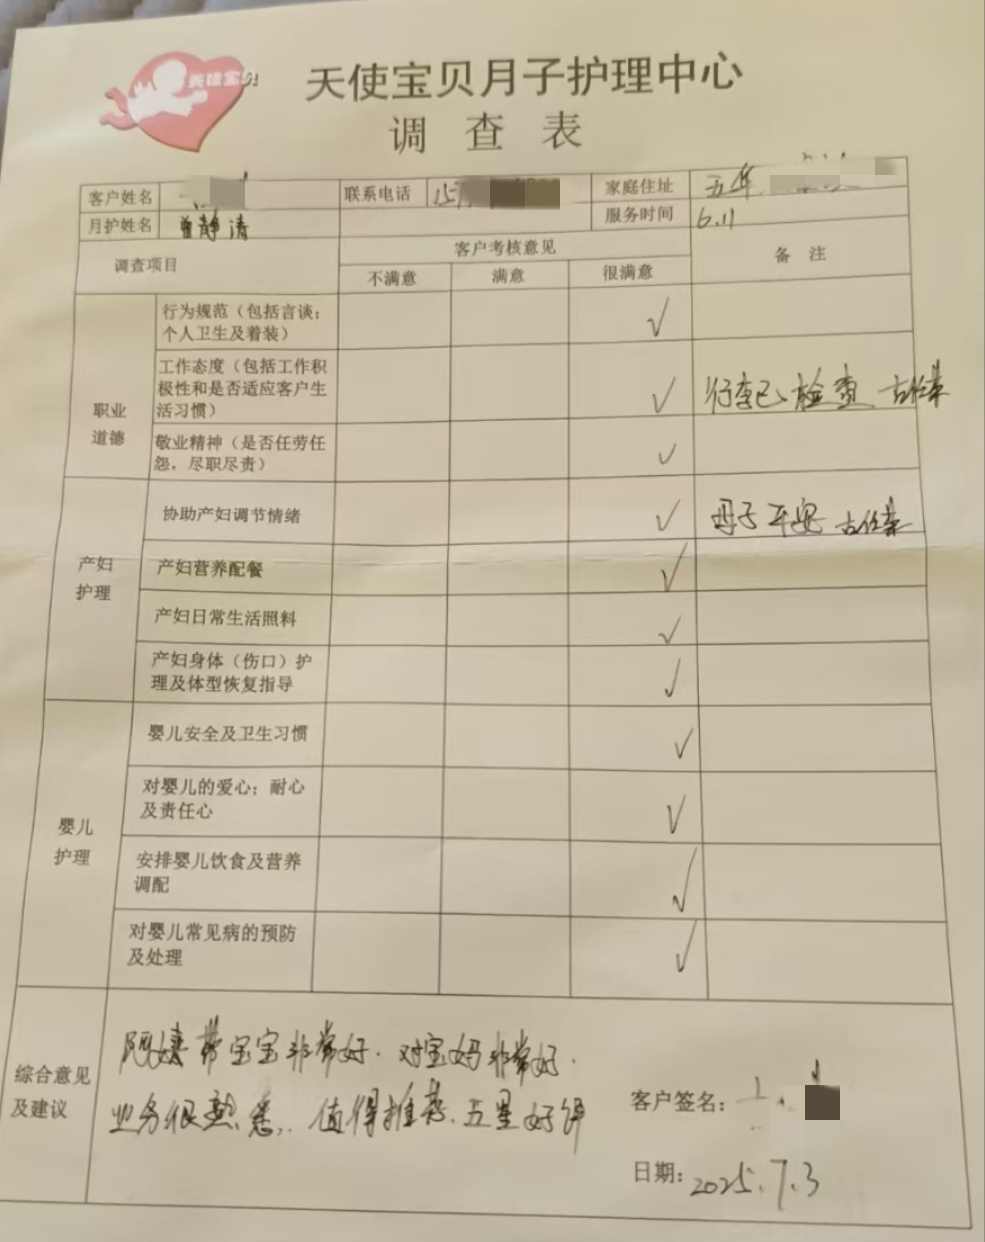 天使宝贝
天使宝贝月子护理中心
调查表
客户姓名 联系电话 家庭住址 五华
月护姓名 曾静清 服务时间 6.11
调查项目 客户考核意见 备注
不满意 满意 很满意
职业
道德
行为规范（包括言谈；
个人卫生及着装） √
工作态度（包括工作积
极性和是否适应客户生
活习惯） √ 行李已检查
敬业精神（是否任劳任
怨，尽职尽责） √
产妇
护理
协助产妇调节情绪 √ 母子平安
产妇营养配餐 √
产妇日常生活照料 √
产妇身体（伤口）护
理及体型恢复指导 √
婴儿
护理
婴儿安全及卫生习惯 √
对婴儿的爱心；耐心
及责任心 √
安排婴儿饮食及营养
调配 √
对婴儿常见病的预防
及处理 √
综合意见
及建议
阿姨带宝宝非常好．对宝妈非常好．
业务很熟悉，值得推荐．五星好评
客户签名：
日期：2025.7.3